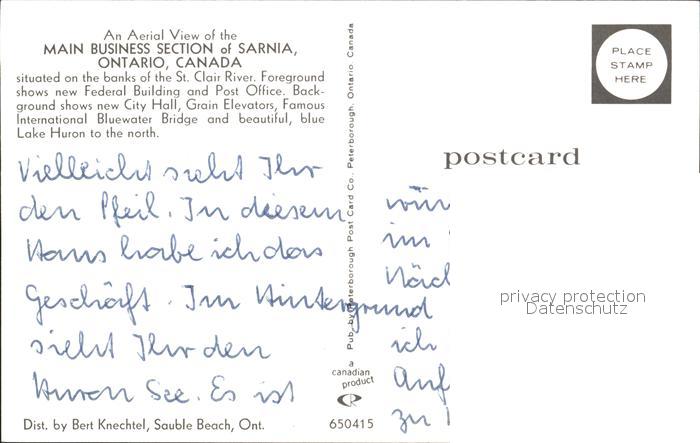 An Aerial View of the
MAIN BUSINESS SECTION of SARNIA,
ONTARIO, CANADA
situated on the banks of the St. Clair River. Foreground
shows new Federal Building and Post Office. Back-
ground shows new City Hall, Grain Elevators, Famous
International Bluewater Bridge and beautiful, blue
Lake Huron to the north.
Vielleicht seht Ihr
den Pfeil. In diesem
Haus habe ich das
Geschäft. Im Hintergrund
sieht Ihr den
Huron See. Es ist
Dist. by Bert Knechtel, Sauble Beach, Ont.
Pub. by Peterborough Post Card Co., Peterborough, Ontario, Canada
a
canadian
product
CR
650415
PLACE
STAMP
HERE
postcard
wür
im
Näch
ich
Auf
zu
privacy protection
Datenschutz